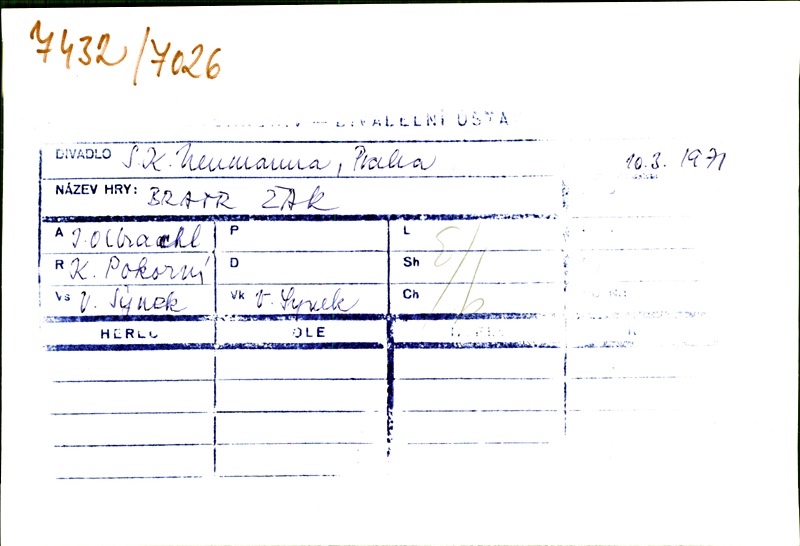 7432/7026
DIVADELNÍ ÚSTA
DIVADLO S.K. Neumanna, Praha 10.3. 1971
NÁZEV HRY: BRATR ŽAK
A I. Olbracht P L
R K. Pokorný D Sh
Vs V. Synek Vk V. Synek Ch
HEREC OLE